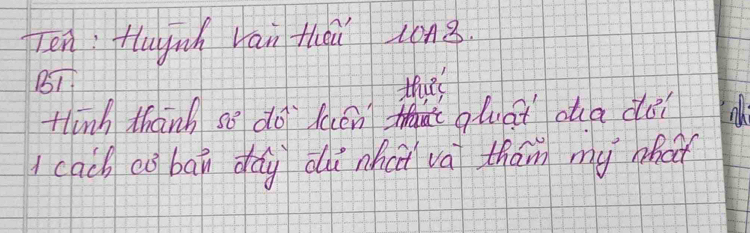 Tên: Huỳnh Văn Hiếu 10A3.
BT:
thức
Hình thành sơ đồ kiến quát địa đới
1 cách cơ bản đầy đủ nhất và thẩm mỹ nhất